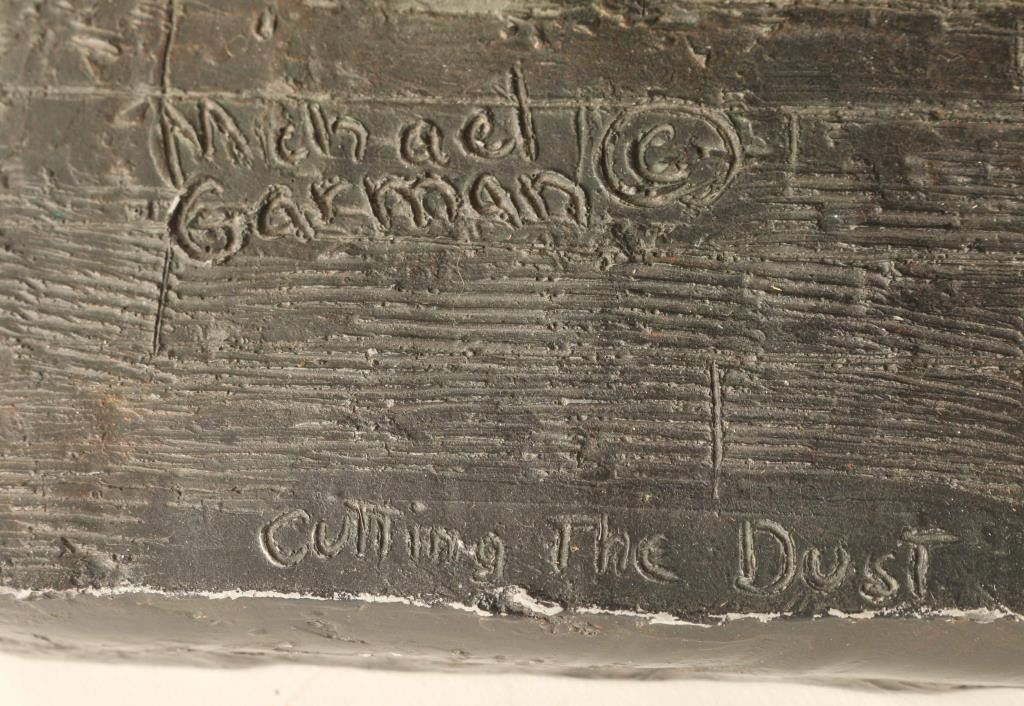 Michael ©
Garman
Cutting The Dust